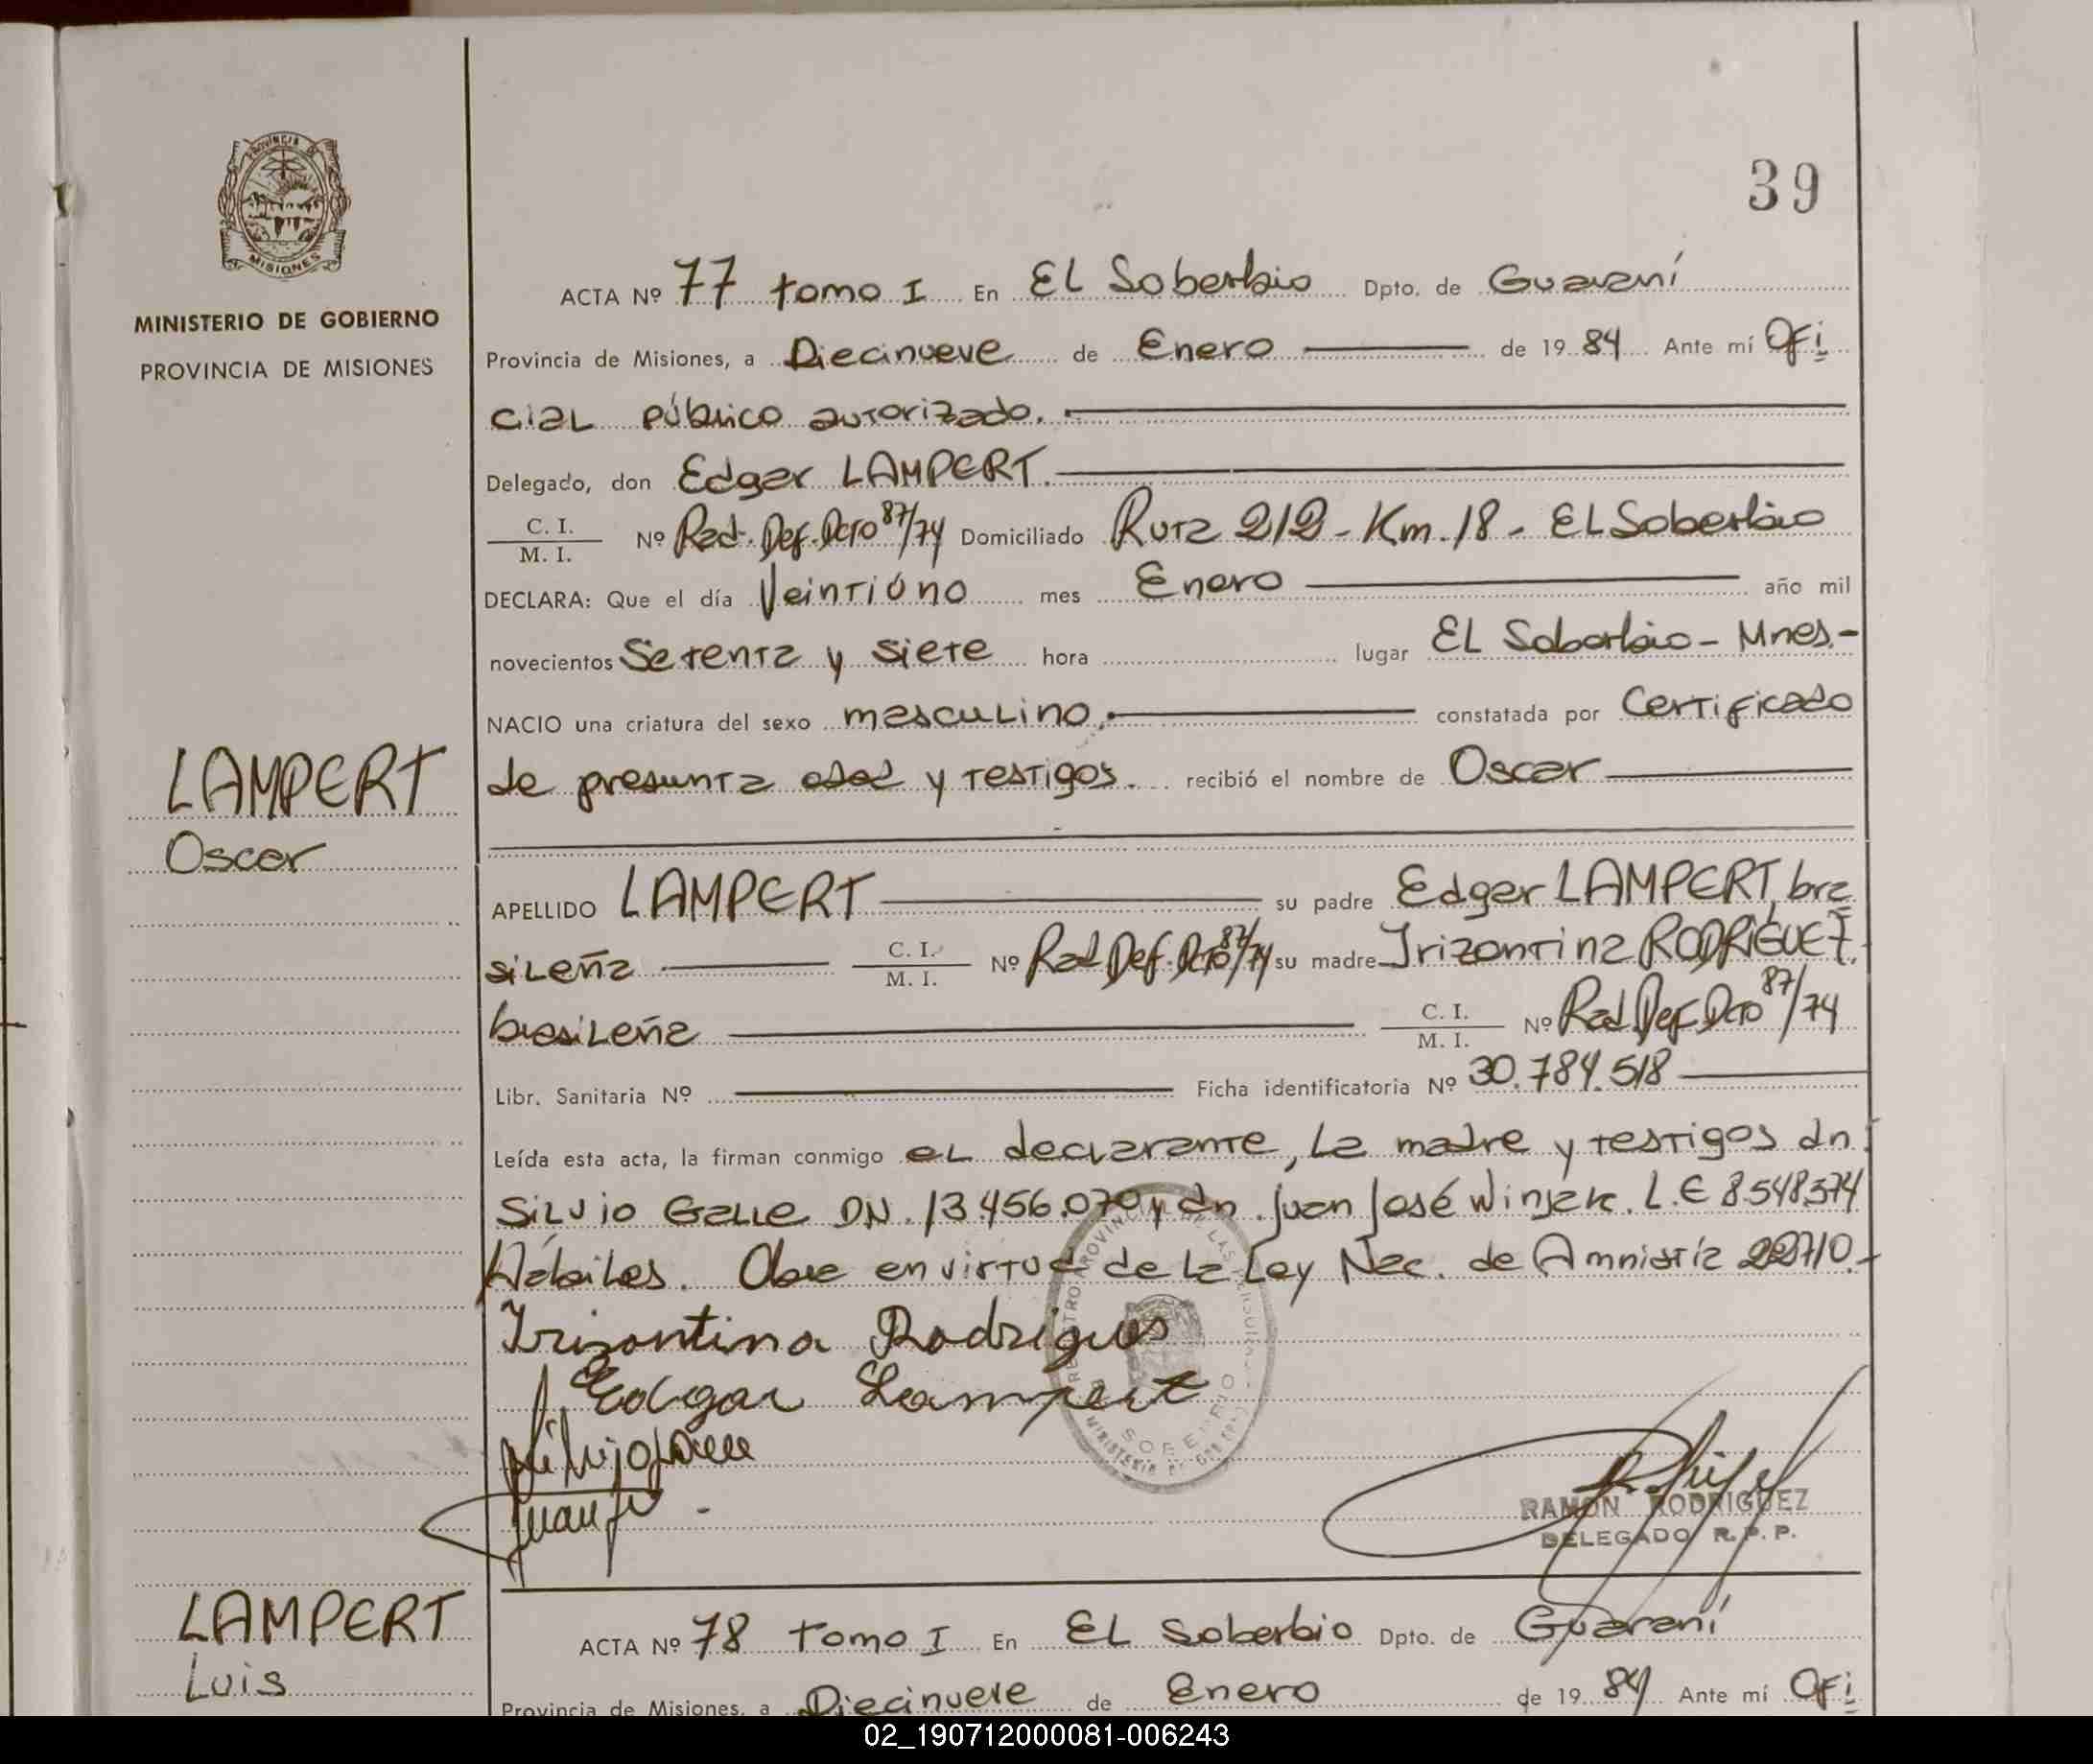 39
PROVINCIA DE
MISIONES
MINISTERIO DE GOBIERNO
PROVINCIA DE MISIONES
ACTA Nº 77 tomo I En EL Soberbio Dpto. de Guaraní
Provincia de Misiones, a Diecinueve de Enero de 19 84 Ante mí Ofi
cial público autorizado.
Delegado, don Edgar LAMPERT.
C. I.
M. I. Nº Rad. Def. Dcto 87/74 Domiciliado Ruta 212 - Km. 18 - EL Soberbio
DECLARA: Que el día Veintiúno mes Enero año mil
novecientos Setenta y siete hora lugar EL Soberbio - Mnes.-
NACIO una criatura del sexo masculino, constatada por Certificado
LAMPERT
Oscar
de presunta edad y testigos. recibió el nombre de Oscar
APELLIDO LAMPERT su padre Edgar LAMPERT, bra
sileña C. I. M. I. Nº Rad Def. Dcto 87/74 su madre Irizontina RODRÍGUEZ.
brasileña C. I. M. I. Nº Rad Def Dcto 87/74
Libr. Sanitaria Nº Ficha identificatoria Nº 30.784.518
Leída esta acta, la firman conmigo el declarante, la madre y testigos dn
Silvio Galle DN. 13.456.070 y dn. Juan José Winjar. L.E 8.548.574
Hábiles. Obre en virtud de la Ley Nac. de Amnistía 22710.-
Irizontina Rodrigues
Edgar Lampert
RAMON RODRIGUEZ
DELEGADO R. P. P.
LAMPERT
Luis
ACTA Nº 78 tomo I En EL Soberbio Dpto. de Guaraní
Provincia de Misiones, a Diecinueve de Enero de 19 84 Ante mí Ofi
02_190712000081-006243